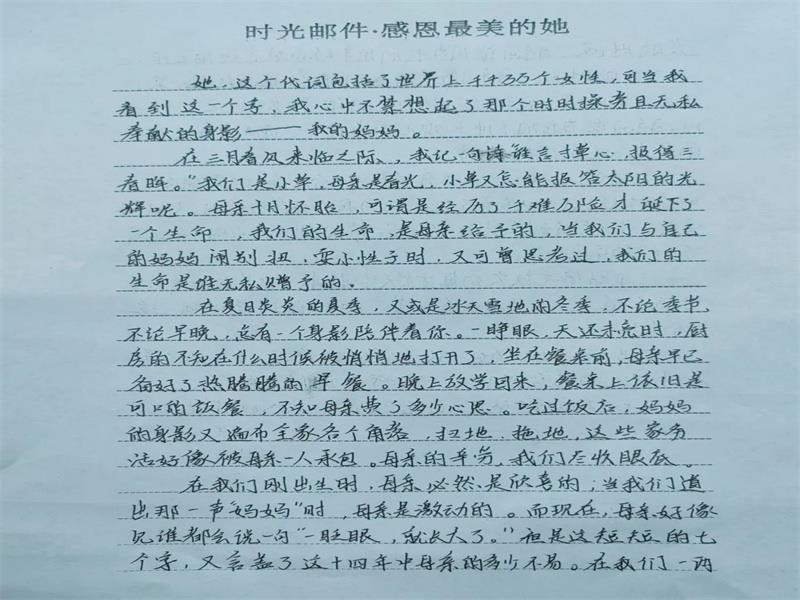 时光邮件·感恩最美的她
她，这个代词包括了世界上千千万万个女性，可当我
看到这一个字，我心中不禁想起了那个时时操劳且无私
奉献的身影——我的妈妈。
在三月春风来临之际，我记一句诗"谁言寸草心，报得三
春晖。"我们是小草，母亲是春光，小草又怎能报答太阳的光
辉呢。母亲十月怀胎，可谓是经历了千难万险才诞下了
一个生命，我们的生命，是母亲给予的，当我们与自己
的妈妈闹别扭，耍小性子时，又可曾思考过，我们的
生命是谁无私赠予的。
在夏日炎炎的夏季，又或是冰天雪地的冬季，不论季节，
不论早晚，总有一个身影陪伴着你。一睁眼，天还未亮时，厨
房的不知在什么时候被悄悄地打开了，坐在餐桌前，母亲早已
备好了热腾腾的早餐。晚上放学回来，餐桌上依旧是
可口的饭餐，不知母亲费了多少心思。吃过饭后，妈妈
的身影又遍布全家各个角落，扫地，拖地，这些家务
活好像被母亲一人承包。母亲的辛劳，我们尽收眼底。
在我们刚出生时，母亲必然是欣喜的；当我们道
出那一声"妈妈"时，母亲是激动的。而现在，母亲好像
见谁都会说一句"一眨眼，就长大了。"但是这短短的七
个字，又言尽了这十四年中母亲的多少不易。在我们一两